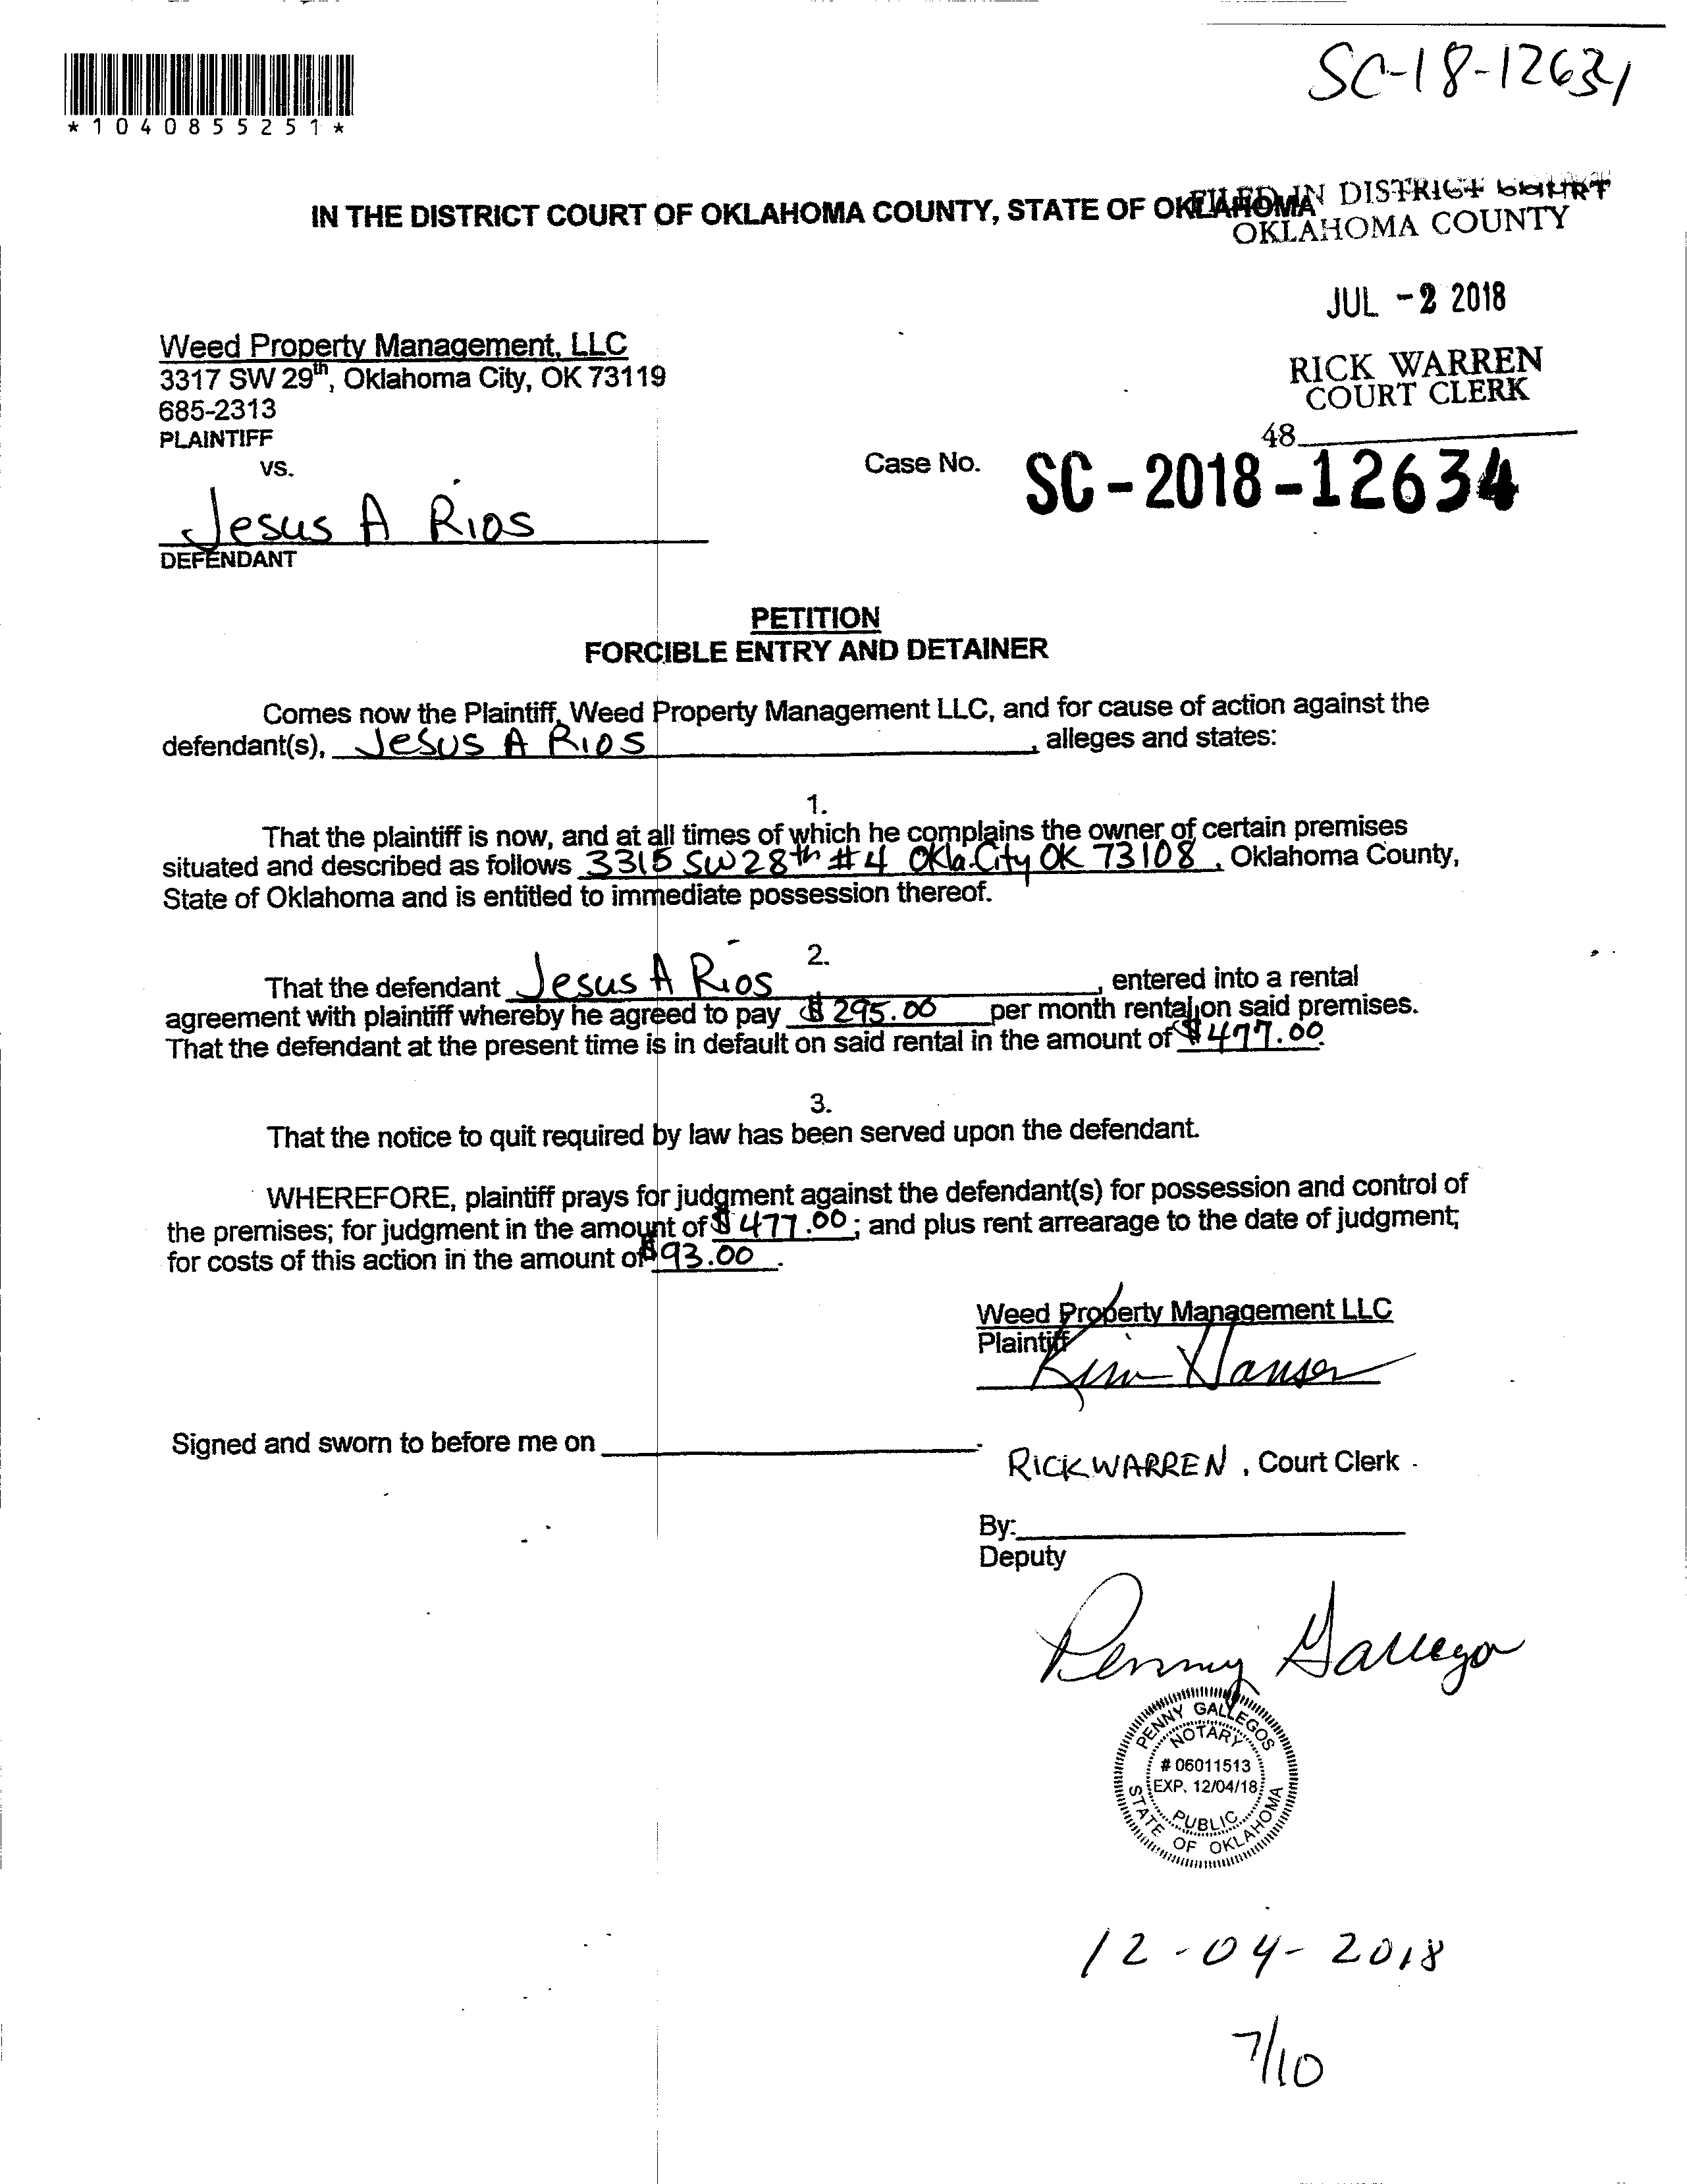 SC-18-12634
*1040855251*
IN THE DISTRICT COURT OF OKLAHOMA COUNTY, STATE OF OKLAHOMA
FILED IN DISTRICT COURT
OKLAHOMA COUNTY
JUL -2 2018
RICK WARREN
COURT CLERK
48
Weed Property Management, LLC
3317 SW 29th, Oklahoma City, OK 73119
685-2313
PLAINTIFF
vs.
Case No. SC-2018-12634
Jesus A Rios
DEFENDANT
PETITION
FORCIBLE ENTRY AND DETAINER
Comes now the Plaintiff, Weed Property Management LLC, and for cause of action against the
defendant(s), Jesus A Rios, alleges and states:
1.
That the plaintiff is now, and at all times of which he complains the owner of certain premises
situated and described as follows 3315 SW 28th #4 Okla. City OK 73108, Oklahoma County,
State of Oklahoma and is entitled to immediate possession thereof.
2.
That the defendant Jesus A Rios, entered into a rental
agreement with plaintiff whereby he agreed to pay $295.00 per month rental on said premises.
That the defendant at the present time is in default on said rental in the amount of $477.00.
3.
That the notice to quit required by law has been served upon the defendant.
WHEREFORE, plaintiff prays for judgment against the defendant(s) for possession and control of
the premises; for judgment in the amount of $477.00; and plus rent arrearage to the date of judgment;
for costs of this action in the amount of $93.00.
Weed Property Management LLC
Plaintiff
Kim Hansen
Signed and sworn to before me on
RICK WARREN, Court Clerk
By:
Deputy
Penny Gallegos
PENNY GALLEGOS
NOTARY
# 06011513
EXP. 12/04/18
PUBLIC
STATE OF OKLAHOMA
12-04-2018
7/10